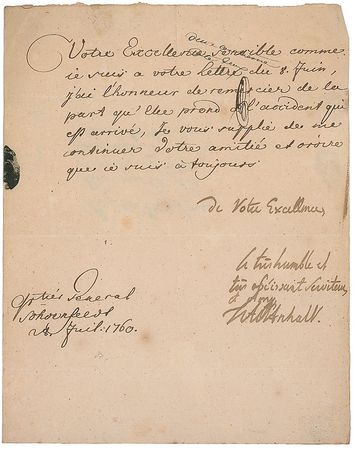 Votre Excellence sensible comme
ie suis a votre lettre du 8. Juin,
j'ai l'honneur de remercier de la
part qu'Elle prend a l'accident qui
est arrivé, Je vous supplie de me
continuer Votre amitié et croire
que ie suis à toujours
de Votre Excellence,
le très humble et
très obéissant serviteur
General
Juil. 1760.